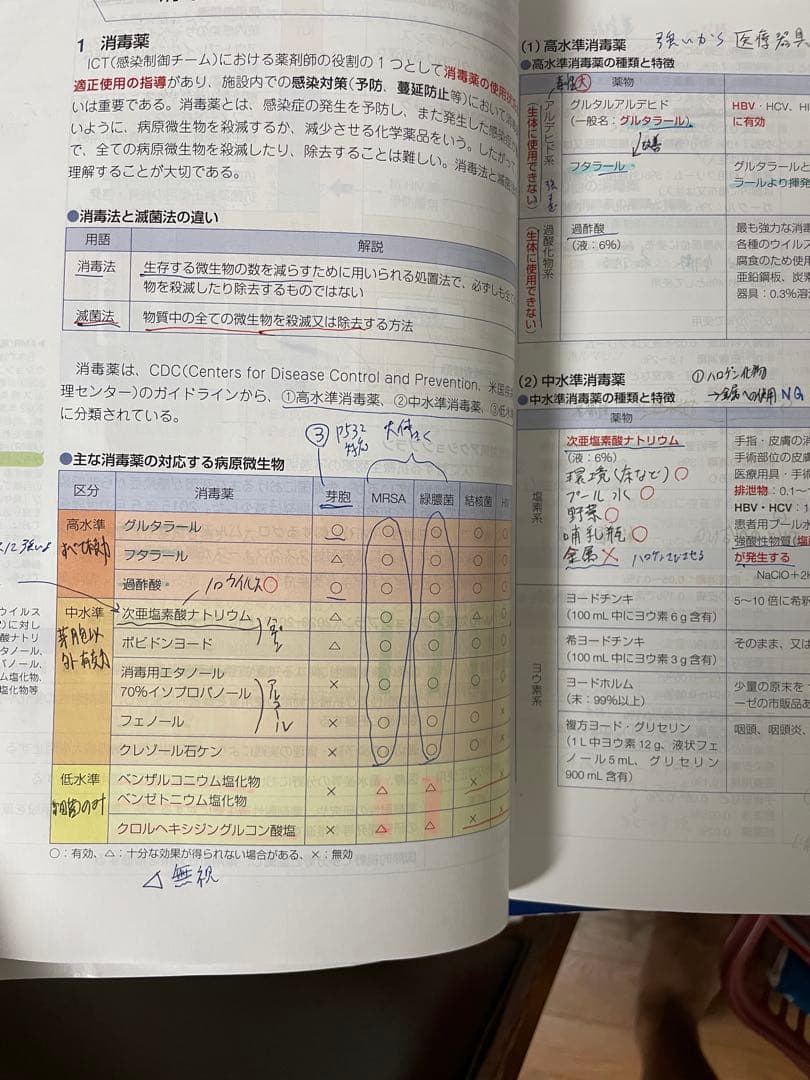 1 消毒薬
ICT(感染制御チーム)における薬剤師の役割の1つとして消毒薬の使用状
適正使用の指導があり、施設内での感染対策(予防、蔓延防止等)において消毒
いは重要である。消毒薬とは、感染症の発生を予防し、また発生した感染症が
いように、病原微生物を殺滅するか、減少させる化学薬品をいう。したがって
で、全ての病原微生物を殺滅したり、除去することは難しい。消毒法と滅菌法
理解することが大切である。
●消毒法と滅菌法の違い
用語 解説
消毒法 生存する微生物の数を減らすために用いられる処置法で、必ずしも全て
物を殺滅したり除去するものではない
滅菌法 物質中の全ての微生物を殺滅又は除去する方法
消毒薬は、CDC(Centers for Disease Control and Prevention、米国疾
理センター)のガイドラインから、①高水準消毒薬、②中水準消毒薬、③低水準
に分類されている。
③ P532
大体きく
●主な消毒薬の対応する病原微生物
区分 消毒薬 芽胞 MRSA 緑膿菌 結核菌
高水準 グルタラール ○ ○ ○ ○
すべて有効
フタラール △ ○ ○ ○
過酢酸 ○ ○ ○ ○
ノロウイルス○
中水準 次亜塩素酸ナトリウム △ ○ ○ △
芽胞以外有効
ポビドンヨード △ ○ ○ ○
消毒用エタノール
70%イソプロパノール × ○ ○ ○
アルコール
フェノール × ○ ○ ○ ×
クレゾール石ケン × ○ ○ ○ ×
低水準 ベンザルコニウム塩化物
細菌のみ
ベンゼトニウム塩化物 × △ △ × ×
クロルヘキシジングルコン酸塩 × △ △ × ×
○:有効、△:十分な効果が得られない場合がある、×:無効
△無視
ウイルス
)に対し
酸ナトリ
タノール、
パノール、
ム塩化物、
塩化物等
(1) 高水準消毒薬
強いから 医療器具
●高水準消毒薬の種類と特徴
毒性大
薬物
アルデヒド系
(生体に使用できない)
グルタルアルデヒド
(一般名:グルタラール)
HBV・HCV、HI
に有効
改善
フタラール
グルタラールと
ラールより揮発
過酸化物系
(生体に使用できない)
過酢酸
(液:6%)
最も強力な消毒
各種のウイルス
腐食のため使用
亜鉛鋼板、炭素
器具:0.3%溶
(2) 中水準消毒薬
①ハロゲン化物
→金属への使用NG
●中水準消毒薬の種類と特徴
薬物
塩素系
次亜塩素酸ナトリウム
(液:6%)
環境(床など)○
プール水○
野菜○
哺乳瓶○
金属× ハロゲンでさびさせる
手指・皮膚の消
手術部位の皮膚
医療用具・手術
排泄物:0.1~
HBV・HCV:1
患者用プール水
強酸性物質(塩
が発生する
NaClO+2H
ヨウ素系
ヨードチンキ
(100 mL中にヨウ素6g含有)
5~10倍に希釈
希ヨードチンキ
(100 mL中にヨウ素3g含有)
そのまま、又は
ヨードホルム
(末:99%以上)
少量の原末を
ーゼの市販品あ
複方ヨード・グリセリン
(1L中ヨウ素12g、液状フェ
ノール5mL、グリセリン
900mL含有)
咽頭、咽頭炎、